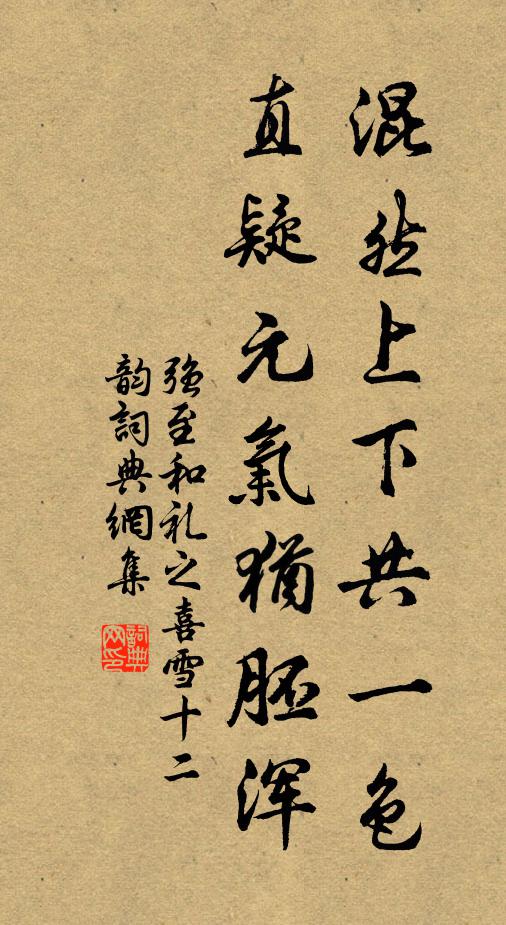 混然上下共一色
直疑元氣猶胚浑
強至和礼之喜雪十二
韵詞典網集
詞典網印